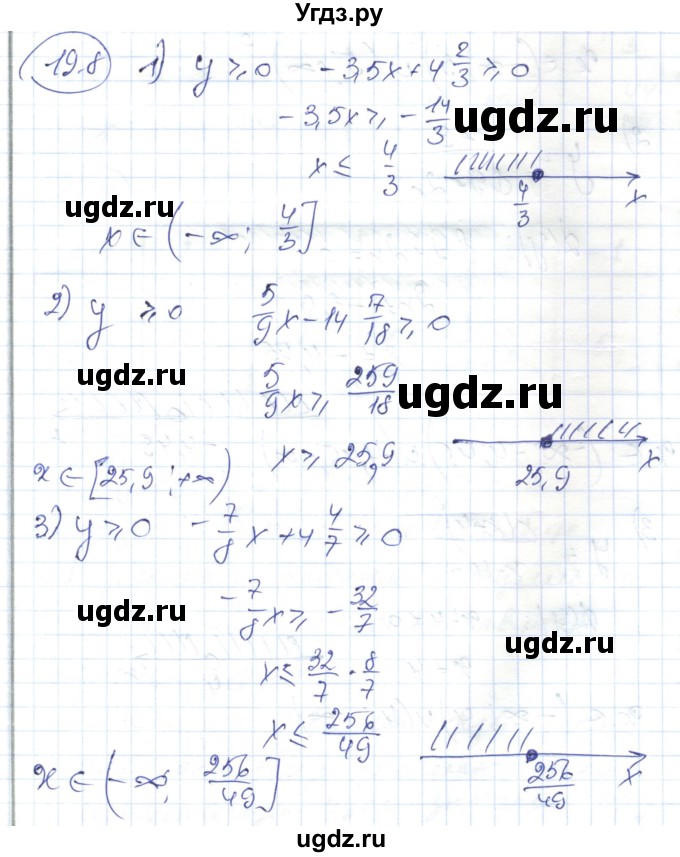 Угдз.ру
19.8 1) y ≥ 0 −3,5x + 4 2/3 ≥ 0
−3,5x ≥ −14/3
ugdz.ru
x ≤ 4/3
4/3 x
ugdz.ru
x ∈ (−∞; 4/3]
2) y ≥ 0 5/9 x − 14 7/18 ≥ 0
ugdz.ru
5/9 x ≥ 259/18
ugdz.ru
x ≥ 25,9
25,9 x
x ∈ [25,9; +∞)
3) y ≥ 0 −7/8 x + 4 4/7 ≥ 0
ugdz.ru
−7/8 x ≥ −32/7
ugdz.ru
x ≤ 32/7 · 8/7
x ≤ 256/49
256/49 x
x ∈ (−∞; 256/49]
ugdz.ru